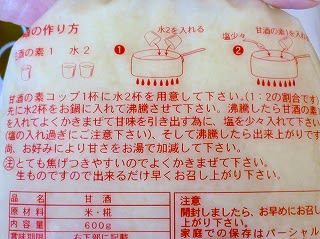 の作り方
酒の素1 水2
❶
水2を入れる
❷
塩少々
甘酒の素1を入れ
甘酒の素コップ1杯に水2杯を用意して下さい。(1:2の割合です
先に水2杯をお鍋に入れて沸騰させて下さい。沸騰したら甘酒の素
入れてよくかきまぜて甘味を引き出す為に、塩を少々入れて下
(塩の入れ過ぎにご注意下さい)、そして沸騰したら出来上がりです
尚、お好みにより甘さをお湯で加減して下さい。
注とても焦げつきやすいのでよくかきまぜて下さい。
生ものですので出来るだけ早くお召し上がり下さい。
品名 甘酒
原材料 米・糀
内容量 600g
賞味期限 右下部に記載
注意
開封しましたら、お早めにお召
上がり下さい。
家庭での保存はパーシャル